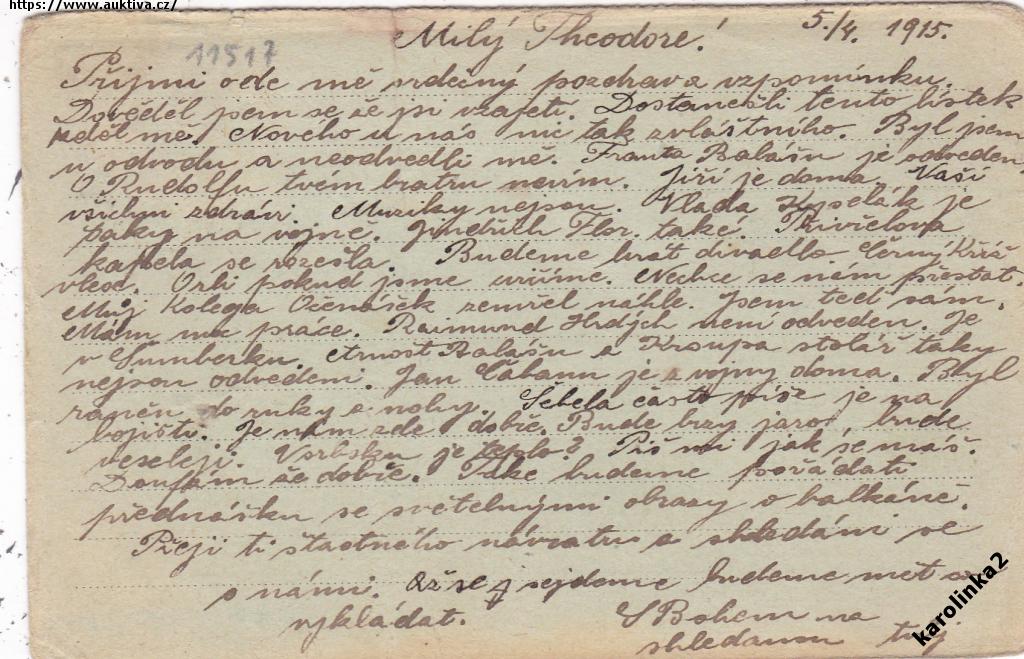 https://www.auktiva.cz/
11517
Milý Theodore! 5./4. 1915.
Přijmi ode mě srdečný pozdrav a vzpomínku.
Dověděl jsem se že jsi v zajetí. Dostaneš li tento lístek
sděl mě. Nového u nás nic tak zvláštního. Byl jsem
u odvodu a neodvedli mě. Franta Balášu je odveden
O Rudolfu tvém bratru nevím. Jiří je doma. Vaši
všichni zdrávi. Muziky nejsou. Vlada je
taky na vojně. Jindřich Flor. také.
kapela se rozešla. Budeme hrát divadlo Černý Kříž
v lese. Orli pokud jsme cvičíme. Nechce se nám přestat.
Můj kolega Ožanášek zemřel náhle. Jsem teď sám.
Mám moc práce. Raimund Hrdých není odveden. Je
v Šumberku. Arnošt Balášu a Kroupa stolář taky
nejsou odvedeni. Jan Cábann je z vojny doma. Byl
raněn do ruky a nohy. Šebela často píše je na
bojišti. Je nám zde dobře. Bude brzy jaro, bude
veseleji. V srbsku je teplo? Piš mi jak se máš.
Doufám že dobře. Také budeme pořádati
přednášku se světelnými obrazy o balkáně.
Přeji ti šťastného návratu a shledání se
s námi. Až se sejdeme budeme mět co
vykládat. S Bohem na
shledanou tvůj
karolinka2